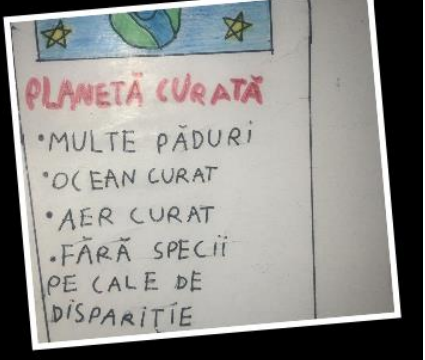 PLANETĂ CURATĂ
•MULTE PĂDURI
•OCEAN CURAT
•AER CURAT
•FĂRĂ SPECII
PE CALE DE
DISPARIȚIE